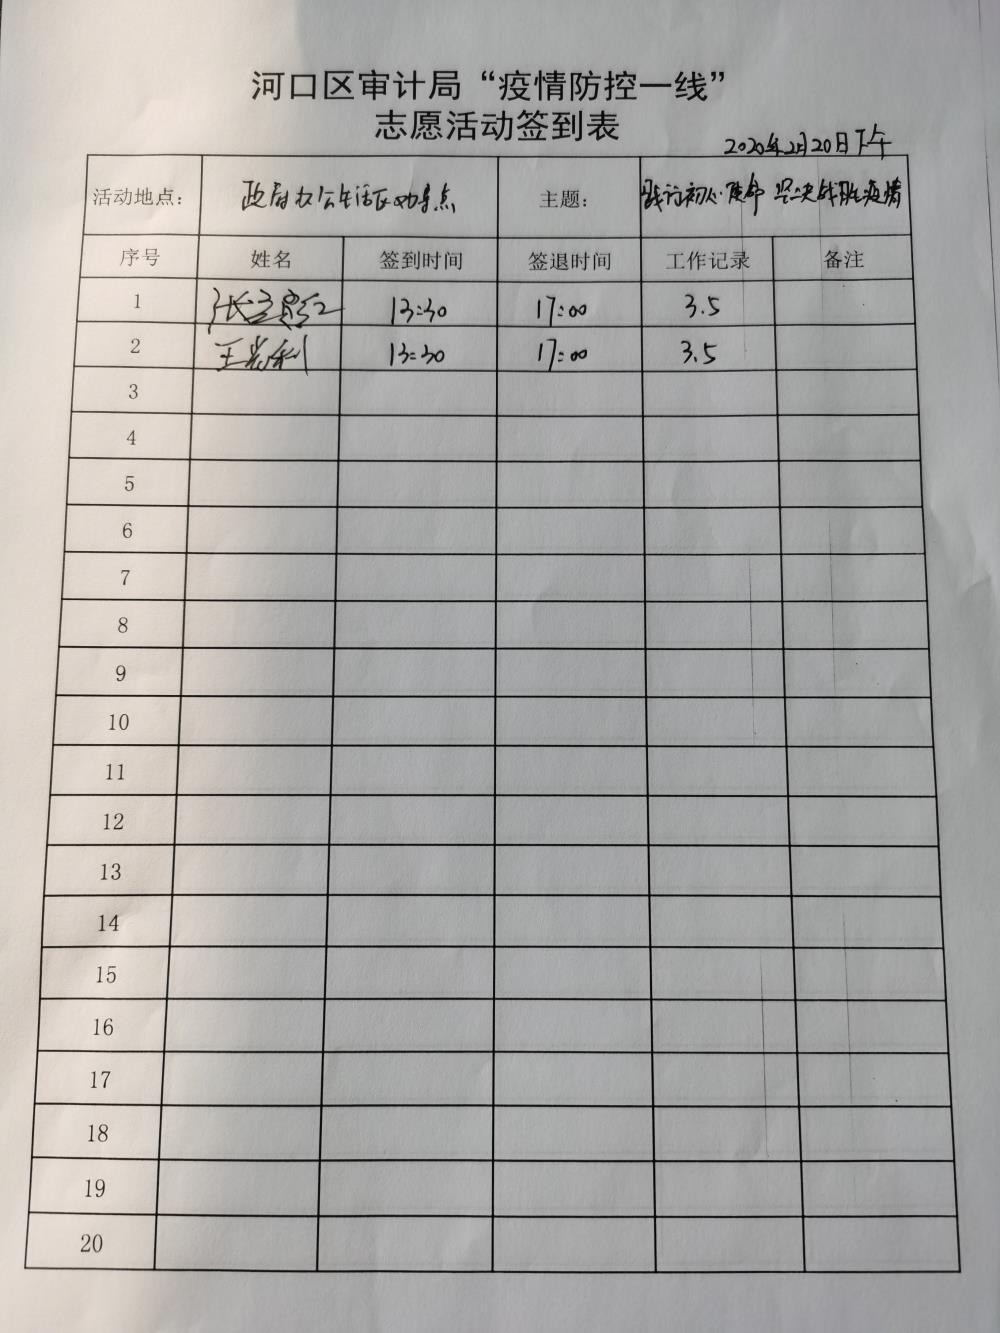 河口区审计局“疫情防控一线”
志愿活动签到表
2020年2月20日下午
活动地点： 政府办公生活区劝导点 主题： 践行初心使命 坚决战胜疫情
序号 姓名 签到时间 签退时间 工作记录 备注
1 13:30 17:00 3.5
2 13:30 17:00 3.5
3
4
5
6
7
8
9
10
11
12
13
14
15
16
17
18
19
20